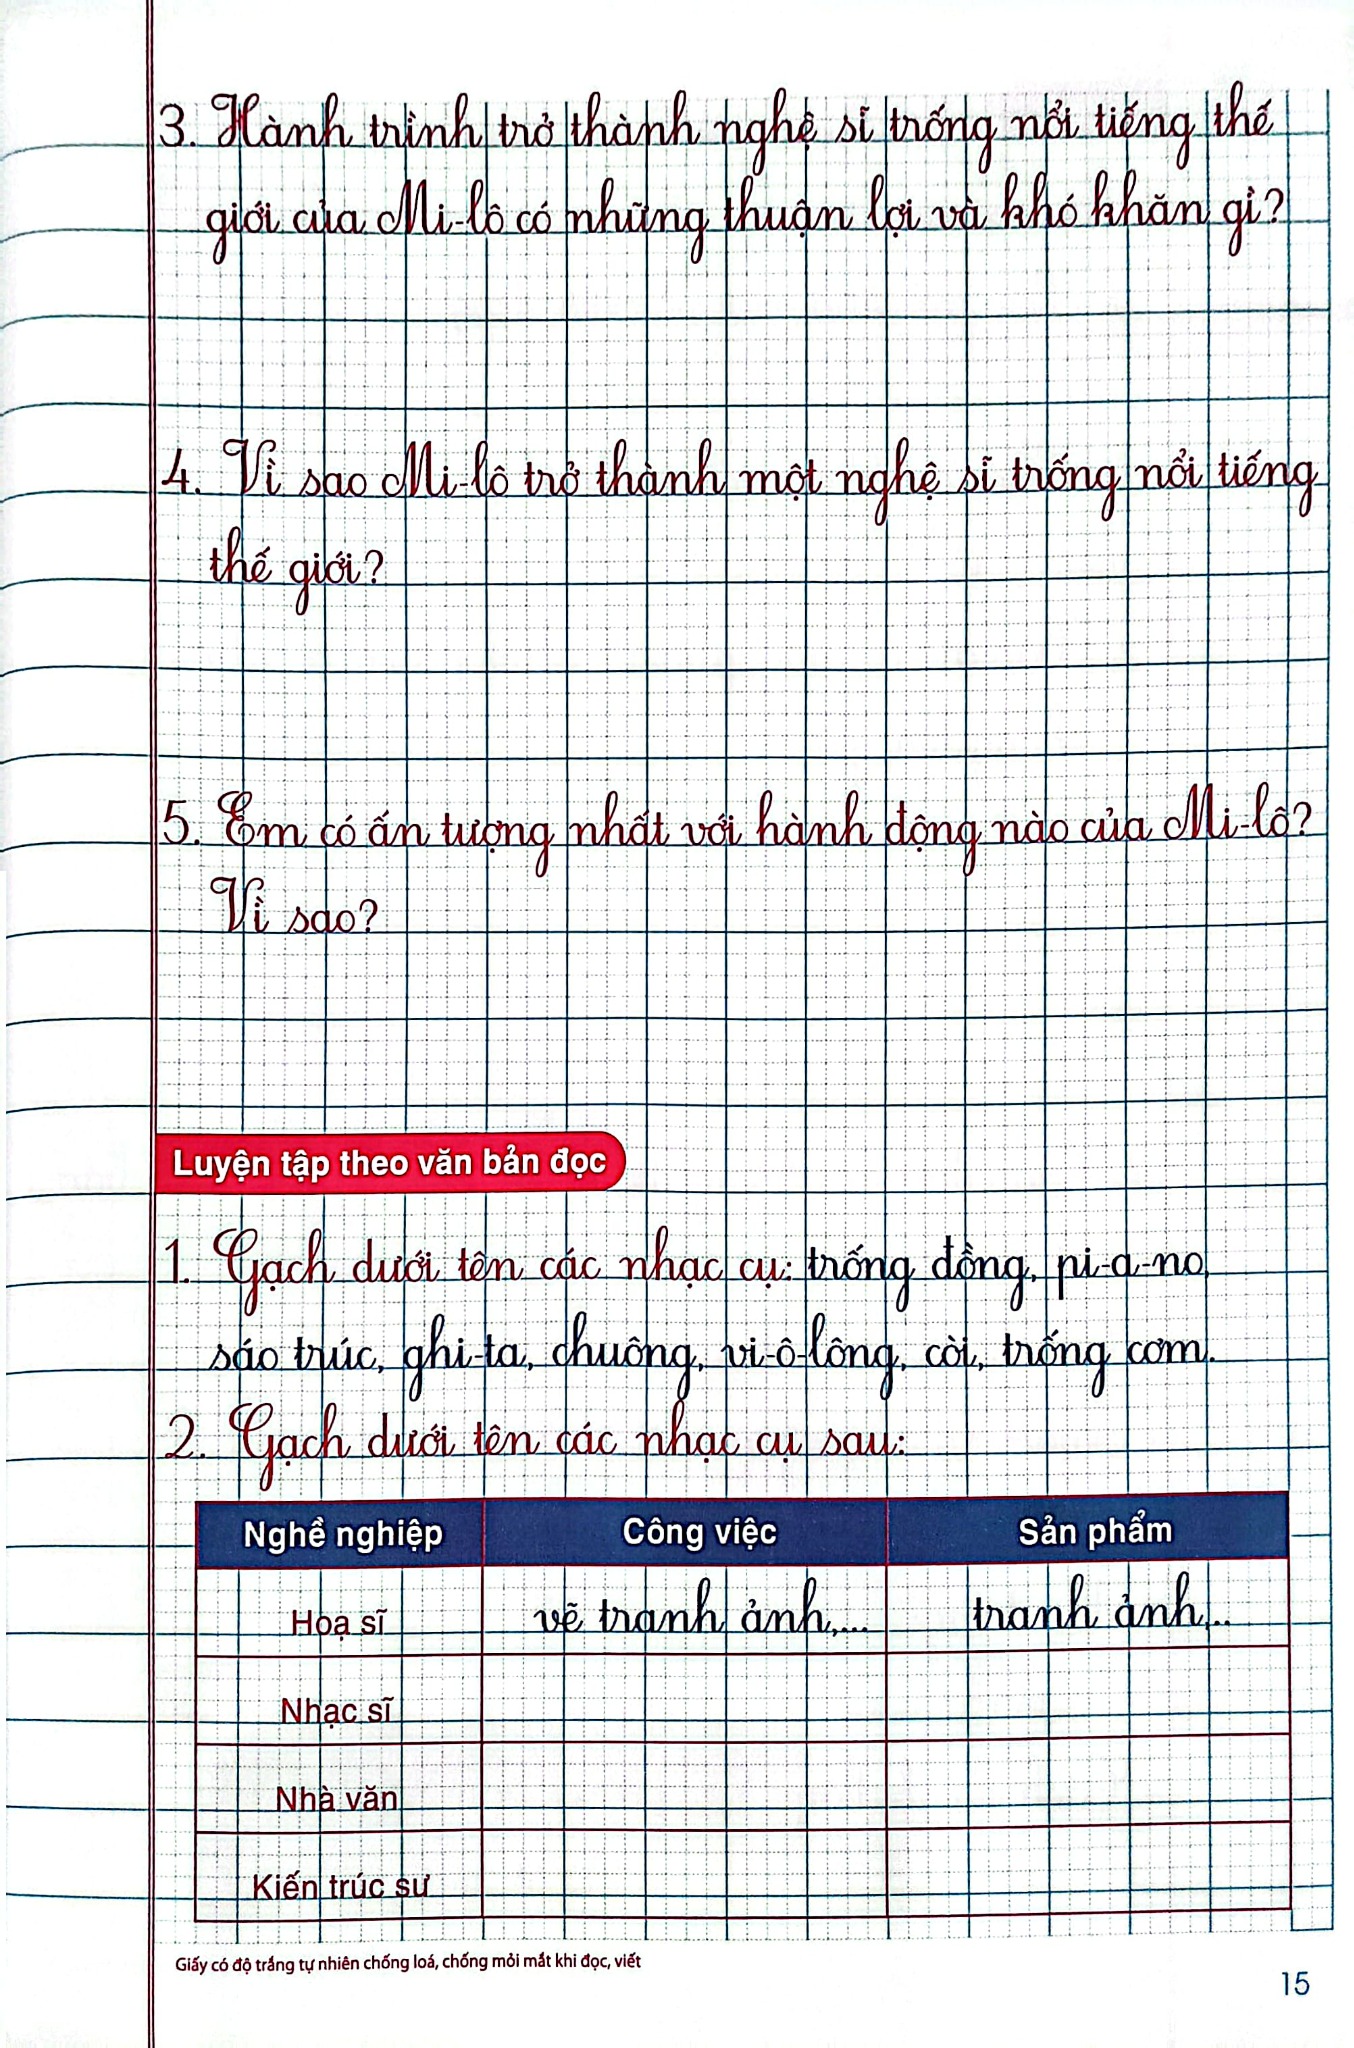 3. Hành trình trở thành nghệ sĩ trống nổi tiếng thế
giới của Mi-lô có những thuận lợi và khó khăn gì?
4. Vì sao Mi-lô trở thành một nghệ sĩ trống nổi tiếng
thế giới?
5. Em có ấn tượng nhất với hành động nào của Mi-lô?
Vì sao?
Luyện tập theo văn bản đọc
1. Gạch dưới tên các nhạc cụ: trống đồng, pi-a-no,
sáo trúc, ghi-ta, chuông, vi-ô-lông, còi, trống cơm.
2. Gạch dưới tên các nhạc cụ sau:
Nghề nghiệp Công việc Sản phẩm
Hoạ sĩ vẽ tranh ảnh,... tranh ảnh,..
Nhạc sĩ
Nhà văn
Kiến trúc sư
Giấy có độ trắng tự nhiên chống loá, chống mỏi mắt khi đọc, viết
15